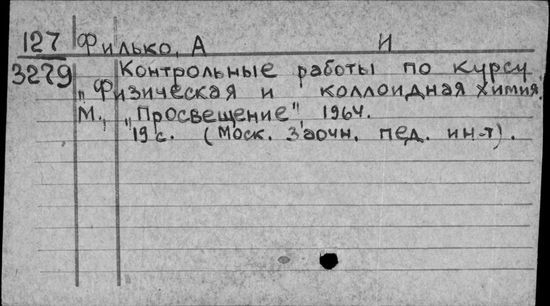 127 Филько, А И
3279 Контрольные работы по курсу
„Физическая и коллоидная химия
М., „Просвещение", 1964.
19 с. (Моск. Заочн. пед. ин-т).